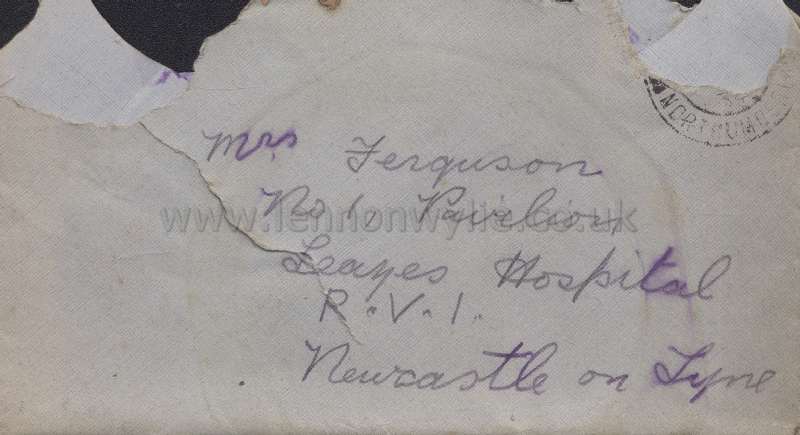 NORTHUMBERLAND
Mrs Ferguson
No 1. Pavilion
www.lennonwylie.co.uk
Leazes Hospital
R.V.I.
Newcastle on Tyne